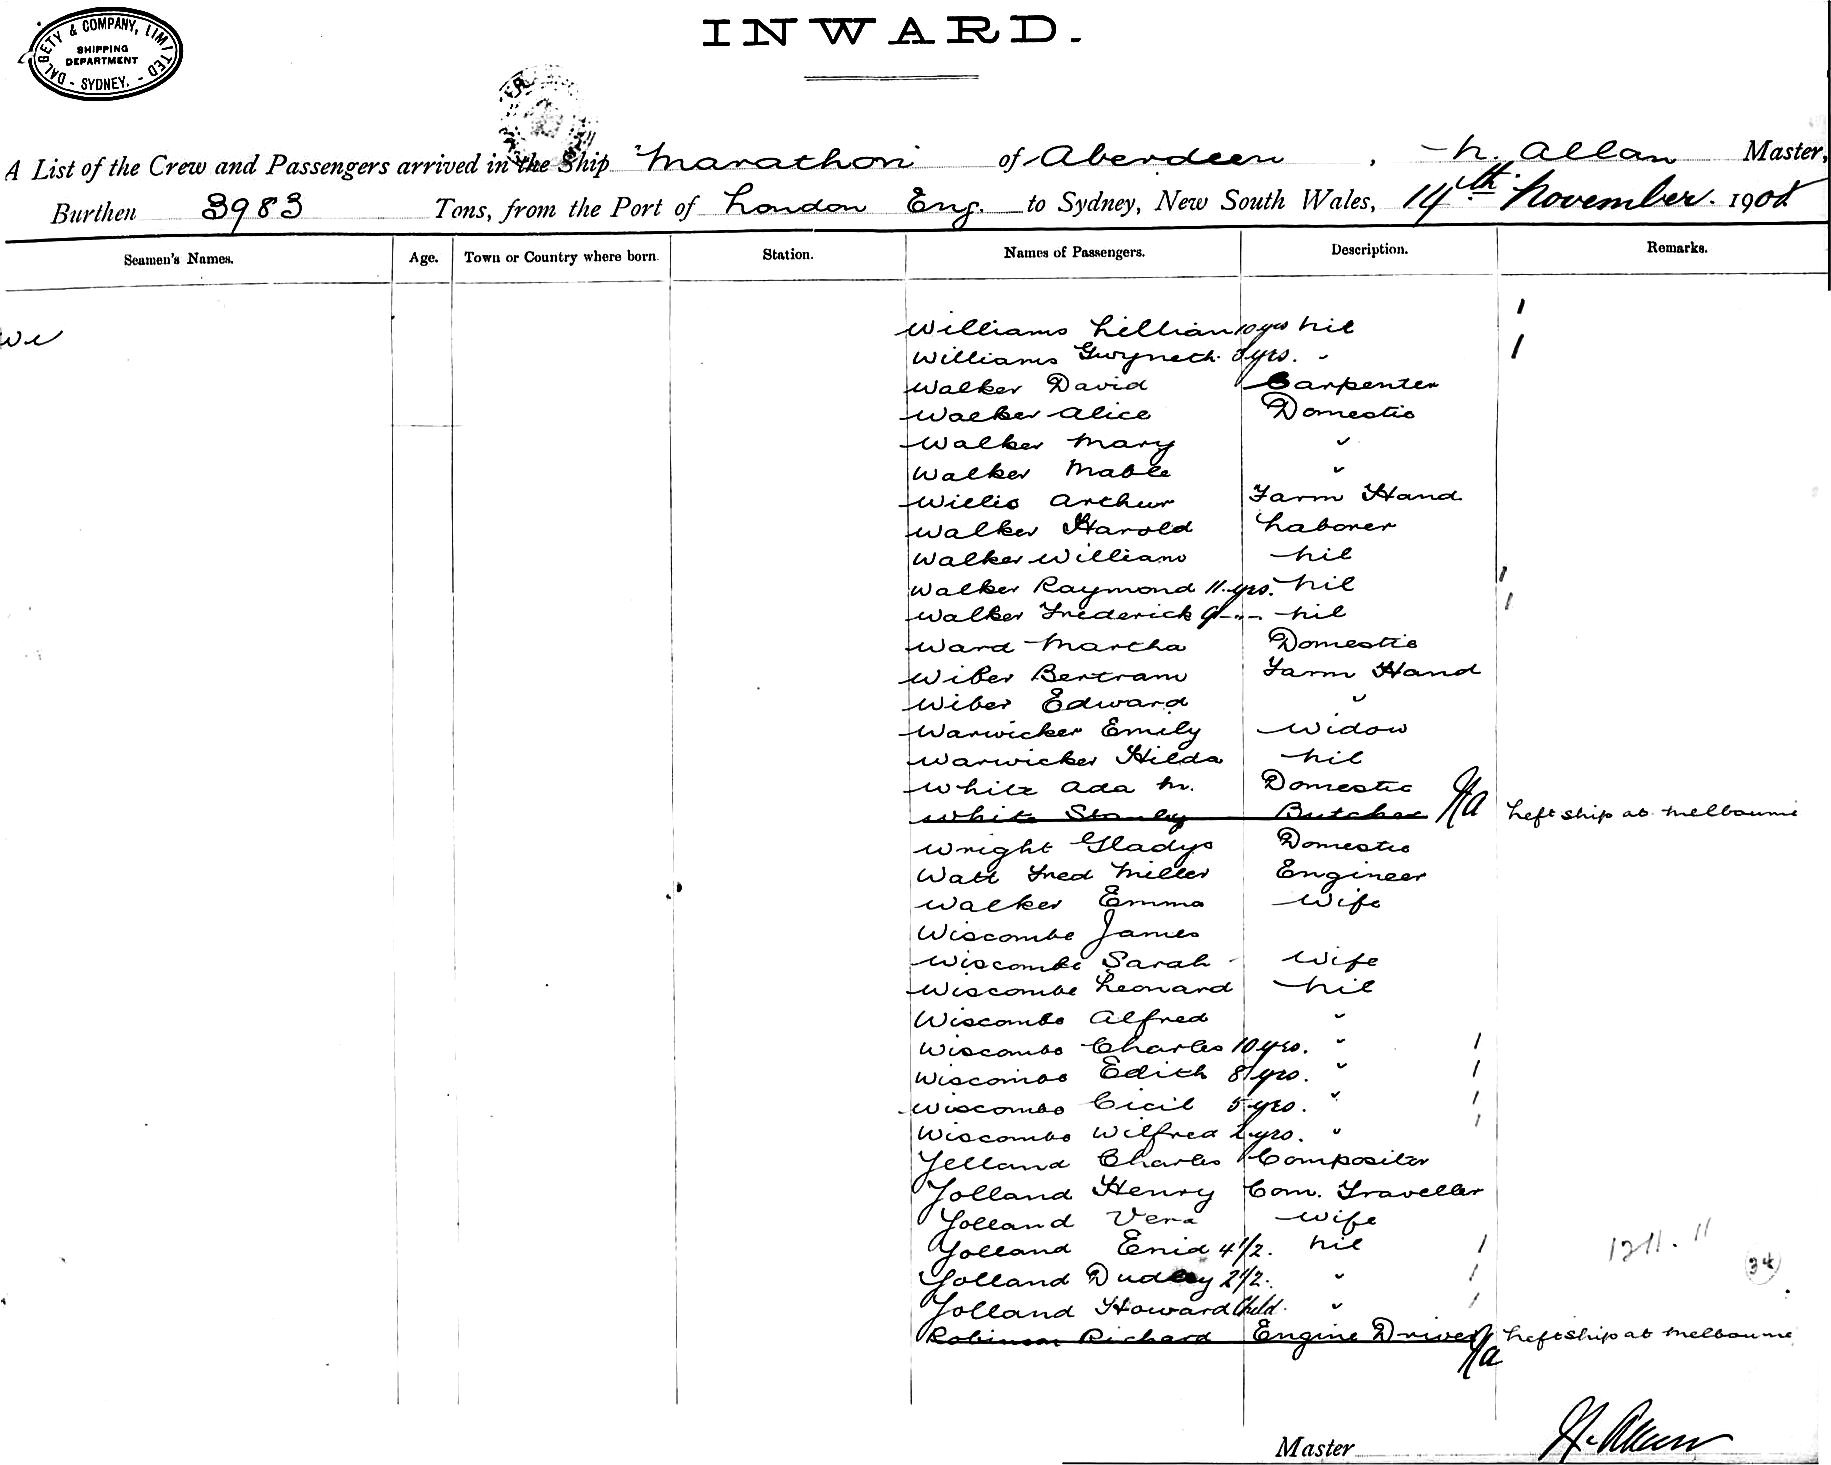 DALGETY & COMPANY, LIMITED
SHIPPING
DEPARTMENT
- SYDNEY. -
INWARD.
A List of the Crew and Passengers arrived in the Ship "Marathon" of Aberdeen, N. Allan Master,
Burthen 3983 Tons, from the Port of London Eng. to Sydney, New South Wales, 14th November. 1908
Seamen's Names. Age. Town or Country where born. Station. Names of Passengers. Description. Remarks.
Williams Lillian 10 yrs Nil 1
Williams Gwyneth 8 yrs. " 1
Walker David Carpenter
Walker Alice Domestic
Walker Mary "
Walker Mable "
Willis Arthur Farm Hand
Walker Harold Laborer
Walker William Nil
Walker Raymond 11 yrs. Nil 1
Walker Frederick 9 -"- Nil 1
Ward Martha Domestic
Wiber Bertram Farm Hand
Wiber Edward "
Warwicker Emily Widow
Warwicker Hilda Nil
White Ada M. Domestic
White Stanley Butcher Left ship at Melbourne
Wright Gladys Domestic
Watt Fred Miller Engineer
Walker Emma Wife
Wiscombe James
Wiscombe Sarah Wife
Wiscombe Leonard Nil
Wiscombe Alfred "
Wiscombe Charles 10 yrs. " 1
Wiscombe Edith 8 yrs. " 1
Wiscombe Cicil 5 yrs. " 1
Wiscombe Wilfred 2 yrs. " 1
Yelland Charles Compositer
Yolland Henry Com. Traveller
Yolland Vera Wife
Yolland Enid 4 1/2. Nil 1
Yolland Dudley 2 1/2. " 1
Yolland Howard Child. " 1
34
Robinson Richard Engine Driver Left ship at Melbourne
Master N. Allan